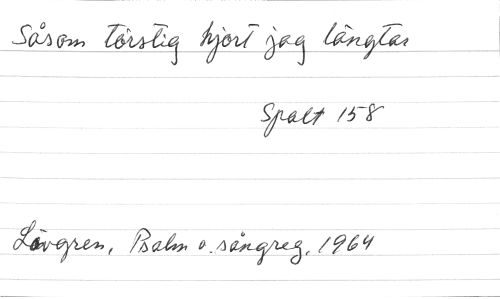 Såsom törstig hjort jag längtar
Spalt 158
Lövgren, Psalm o. sångreg. 1964